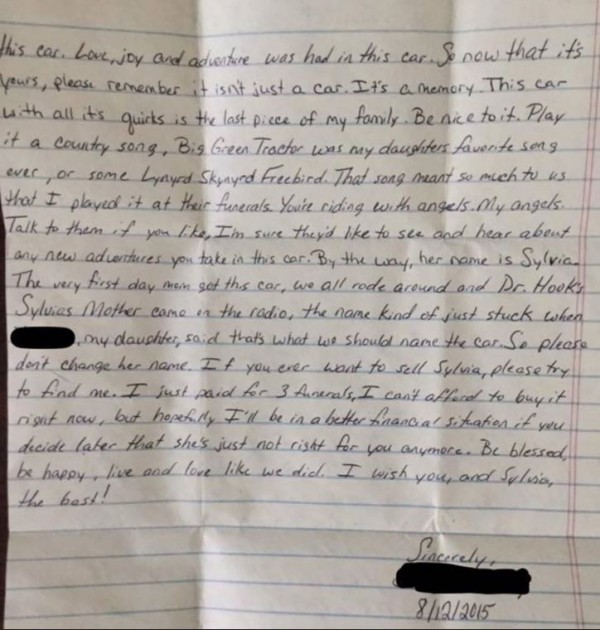 this car. Love, joy and adventure was had in this car. So now that it's
yours, please remember it isn't just a car. It's a memory. This car
with all it's quirks is the last piece of my family. Be nice to it. Play
it a country song, Big Green Tractor was my daughters favorite song
ever, or some Lynyrd Skynyrd Freebird. That song meant so much to us
that I played it at their funerals. You're riding with angels. My angels.
Talk to them if you like, I'm sure they'd like to see and hear about
any new adventures you take in this car. By the way, her name is Sylvia.
The very first day mom got this car, we all rode around and Dr. Hook's
Sylvias Mother came on the radio, the name kind of just stuck when
, my daughter, said that's what we should name the car. So please
don't change her name. If you ever want to sell Sylvia, please try
to find me. I just paid for 3 funerals, I can't afford to buy it
right now, but hopefully I'll be in a better financial situation if you
decide later that she's just not right for you anymore. Be blessed,
be happy, live and love like we did. I wish you, and Sylvia,
the best!
Sincerely,
8/12/2015